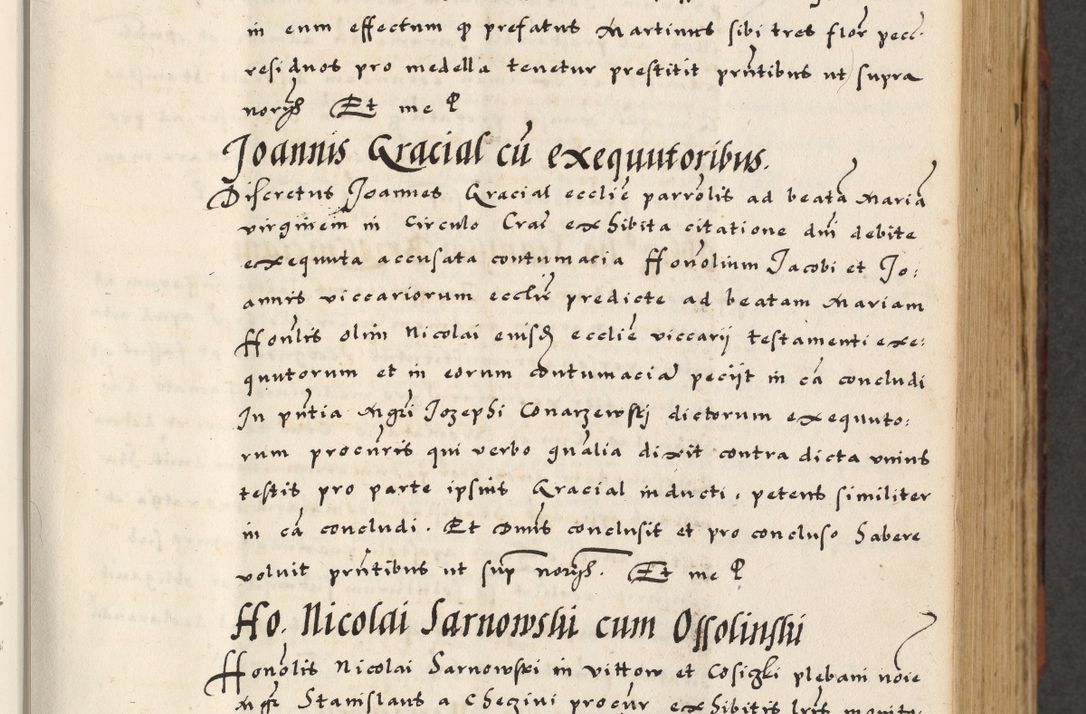 in eum effectum q̃ prefatus Martinus sibi tres flor̃ pecc̃.
residuos pro medella tenetur prestitit pr̃ntibus ut supra
nor͂ys Et me
Joannis Gracial cũ exequutoribus.
Discretus Joannes Gracial eccliẽ parrolis ad beatã Mariã
virginem in Circulo Crac̃ exhibita citatione dñi debite
exequuta accusata contumacia Honolium Jacobi et Jo:
annis viccariorum eccliẽ predicte ad beatam Mariam
Honlis olim Nicolai eiusd̃ eccliẽ viccarij testamenti exe:
quutorum et in eorum contumaciã peciit in cã concludi
In pñtia Mgr̃i Jozephi Conarzewskj dictorum exequuto:
rum procuris qui verbo gñalia dixit contra dicta unius
testis pro parte ipsius Gracial inducti, petens similiter
in cã concludi. Et Dñus conclusit et pro concluso habere
voluit pr̃ntibus ut sup nor͂ys. Et me
Ho. Nicolai Sarnowski cum Ossolinski
Honolis Nicolai Sarnowski in Vittow et plebani noie
Mgr̃ Stanislaus a procur̃ exhibitis lr̃is